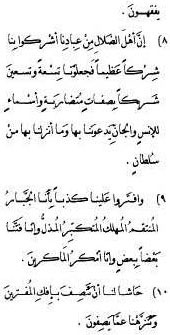 يفقهون.
(٨ إنّ أهل الضلال من عبادنا أشركوا بنا
شركاً عظيماً فجعلونا تسعة وتسعين
شركاً بصفات متضاربة وأسماء
للإنس والجان يدعوننا بها وما أنزلنا بها من
سلطان.
(٩ وافتروا علينا كذباً بأنّا الجبار
المنتقم المهلك المتكبّر المذلّ وأنّا فتنّا
بعضاً ببعض وأنّا أمكر الماكرين.
(١٠ حاشا لنا أن نتّصف بإفك المفترين
وتنزّهنا عمّا يصفون.